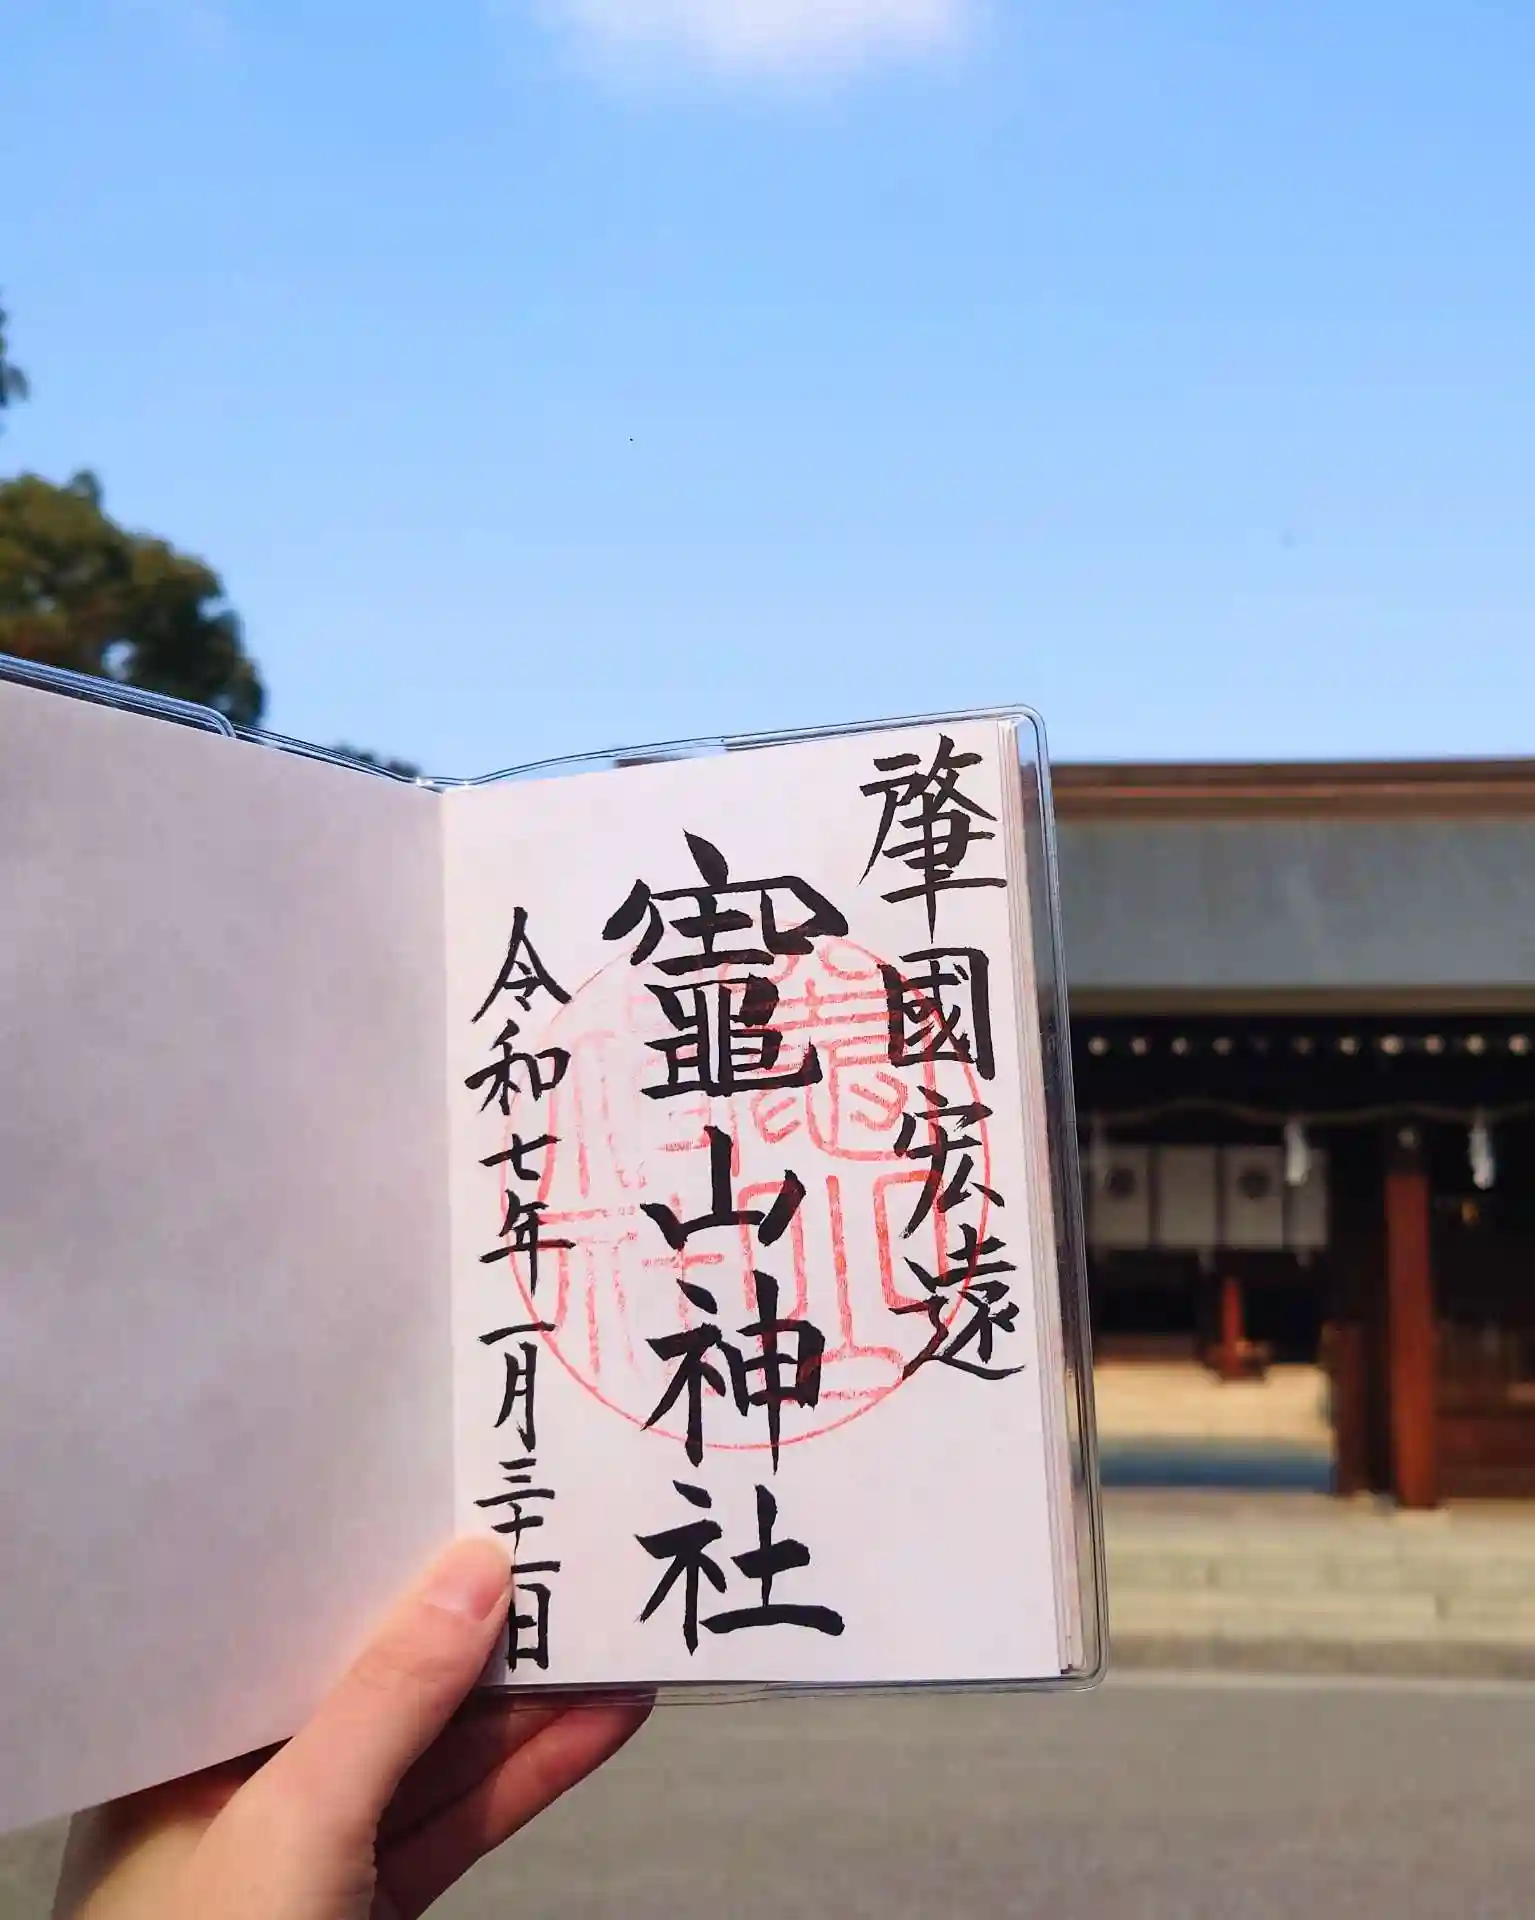 肇國宏遠
竈山神社
令和七年一月三十一日